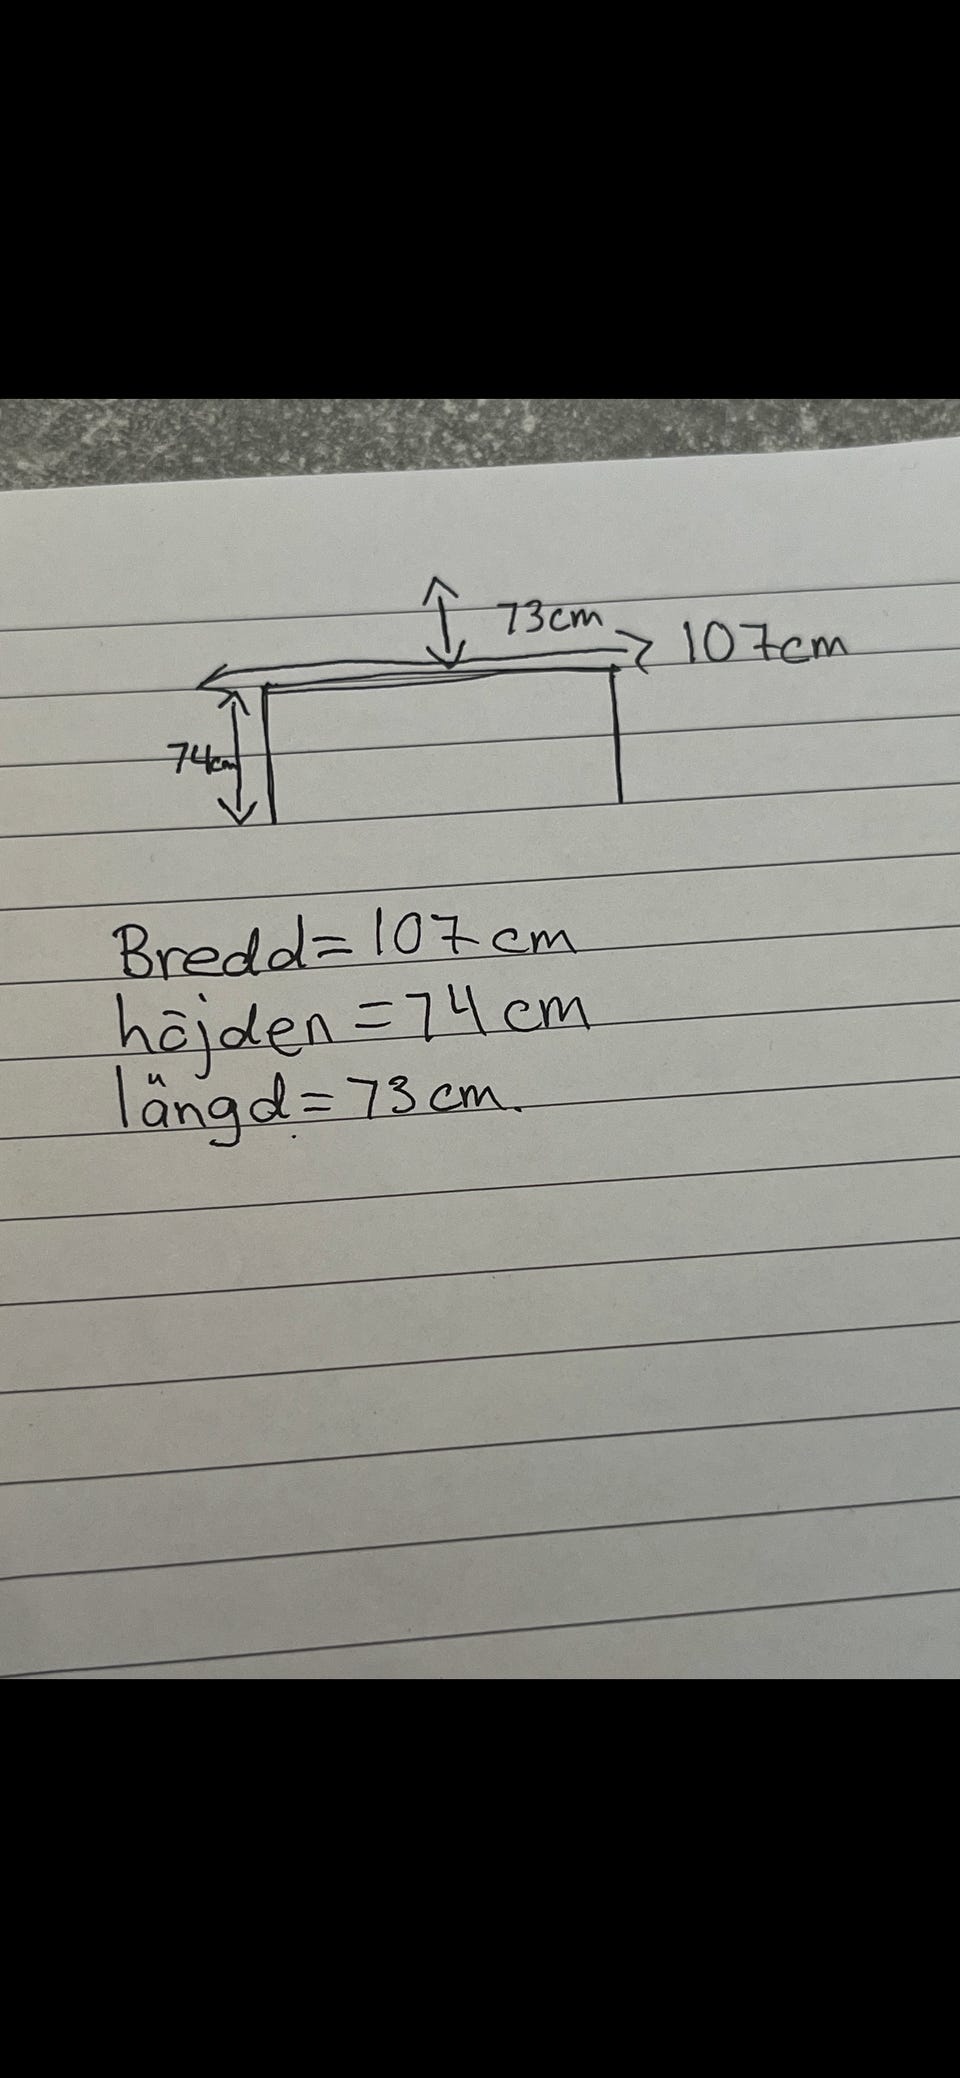 73cm
107cm
74cm
Bredd=107 cm
höjden =74 cm
längd=73 cm.